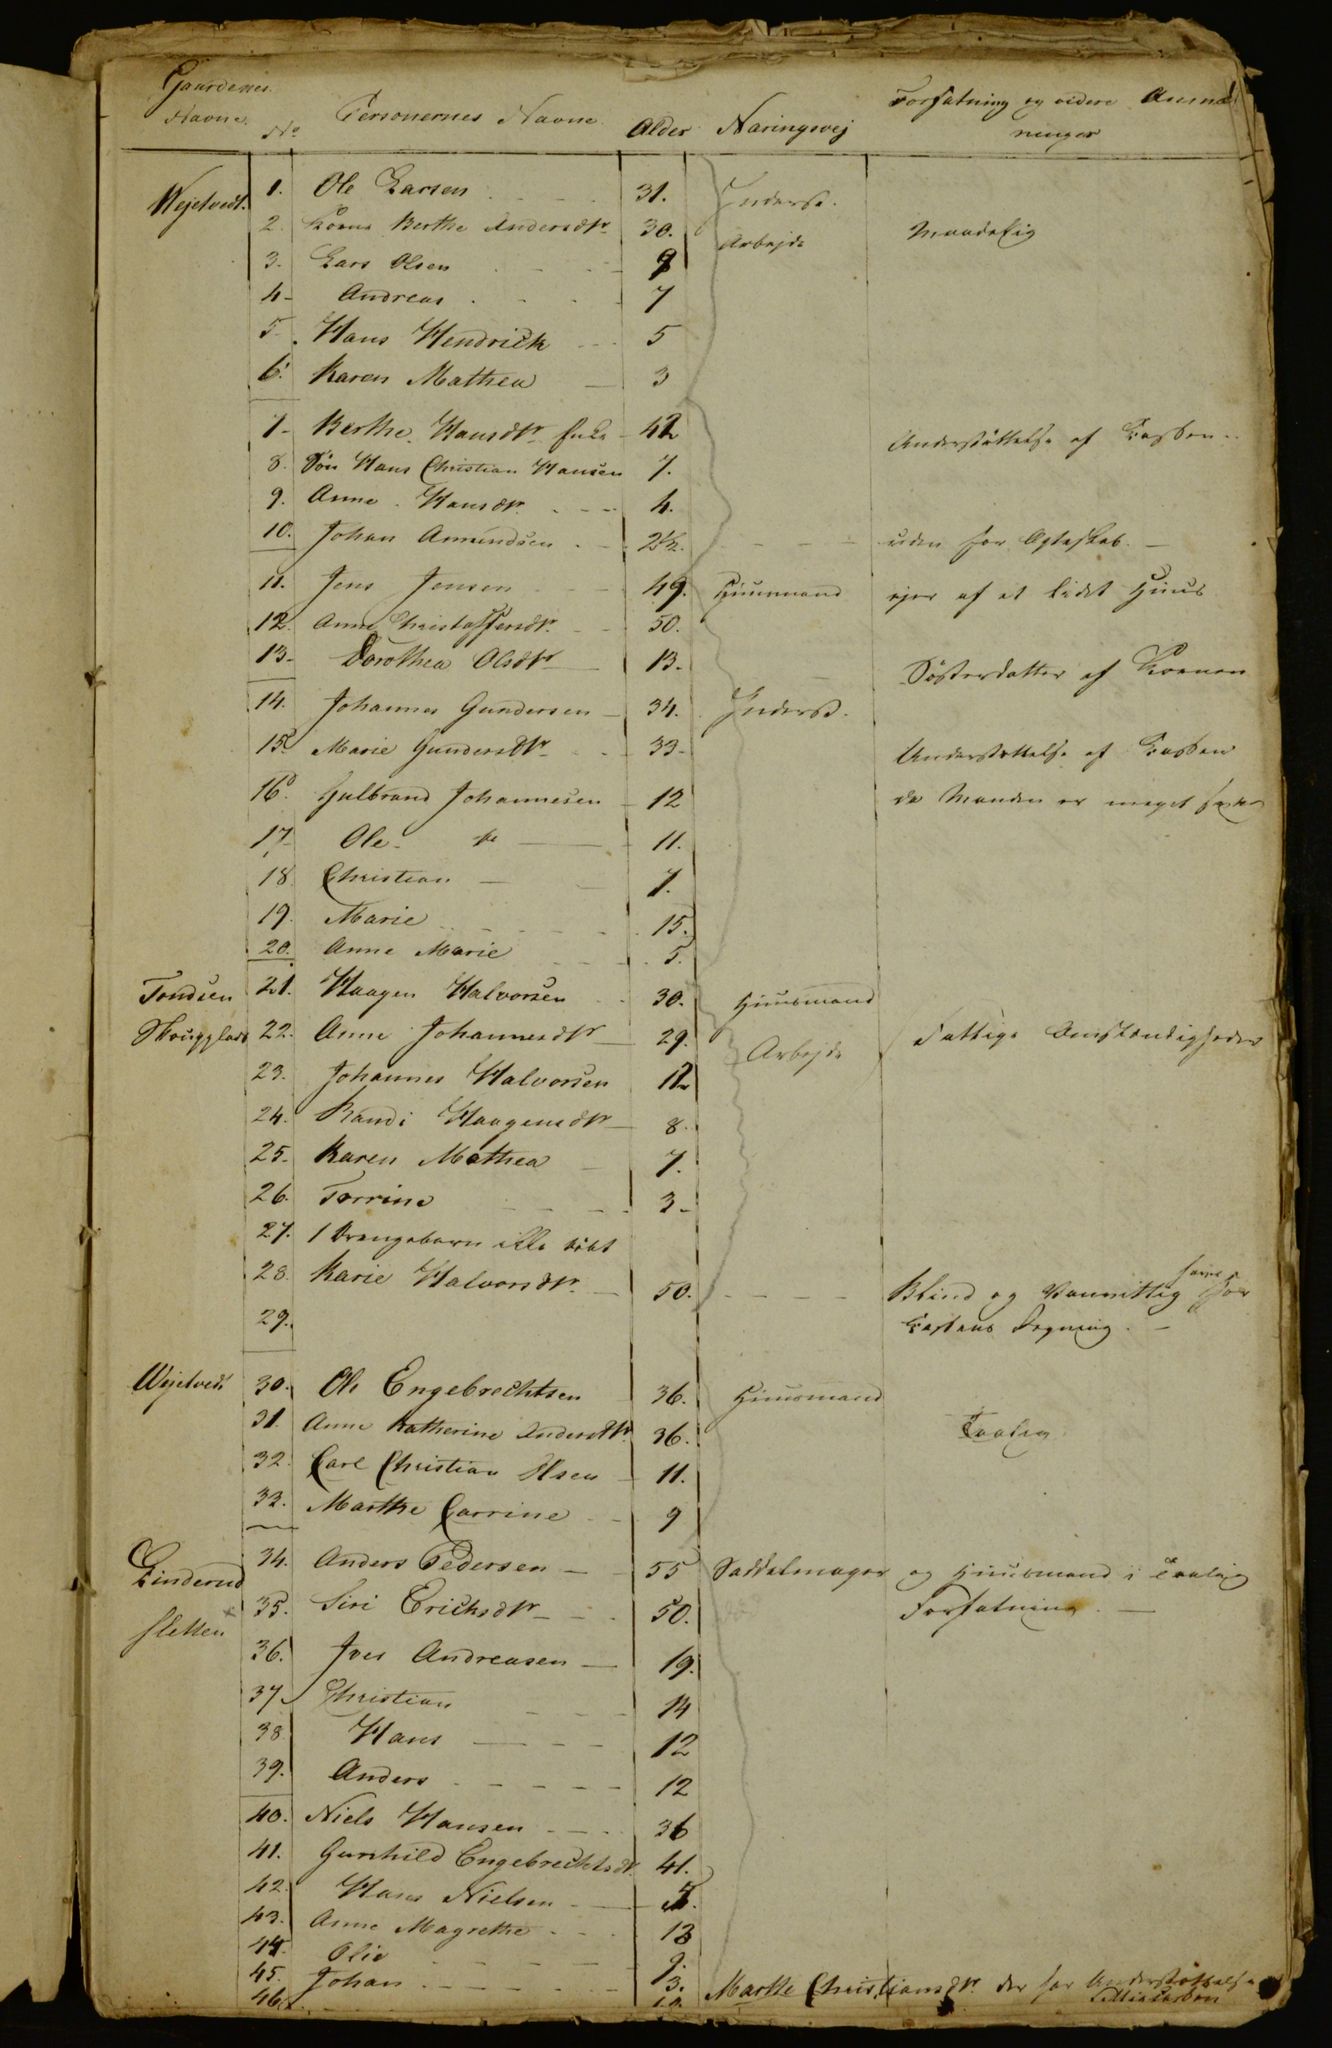 Gaardenes Navne. No Personernes Navne. Alder Næringsvej Forfatning og videre Anmærkninger
Wejetvedt. 1. Ole Larsen 31. Inderst.
2. Kone Berthe Andersdtr 30. Arbejde Maadelig
3. Lars Olsen 9
4 Andreas 7
5 Hans Hendrick 5
6. Karen Mathea 3
7 Berthe Hansdtr Enke 42 Understøttelse af Cassen
8. Søn Hans Christian Hansen 7.
9. Anne Hansdtr. 4.
10. Johan Amundsen 2½. uden for Ægteskab.
11. Jens Jensen 49. Huusmand ejer af et lidet Huus
12. Anne Christoffersdtr. 50.
13. Dorothea Olsdtr 13. Søsterdatter af Konen
14. Johannes Gundersen 34. Inderst.
15. Marie Gundersdtr 33 Understøttelse af Cassen
16. Gulbrand Johannesen 12 da Manden er meget
17 Ole 11.
18 Christian 7.
19. Marie 15.
20. Anne Marie 5.
Tondsen 21. Haagen Halvorsen 30. Huusmand
Skougplads 22. Anne Johannesdtr 29. Arbejde Fattige Omstændigheder
23. Johannes Halvorsen 12
24. Randi Haagensdtr 8.
25. Karen Mathea 7.
26. Torrine 3
27. 1 Drengebarn ikke døbt
28. Karie Halvorsdtr. 50. Blind og Vanvittig for
29. Cassens Regning.
Wejetvedt 30. Ole Engebrechtsen 36. Huusmand
31. Anne Katherine Andersdtr. 36. Taalig
32. Carl Christian Olsen 11.
33. Marthe Carrine 9
Linderud 34. Anders Pedersen 55 Saddelmager og Huusmand i taalig
sletten 35. Siri Ericksdtr 50. Forfatning.
36. Iver Andreasen 19.
37 Christian 14
38 Hans 12
39. Anders 12
40. Niels Hansen 36
41. Gunhild Engebrechtsdtr. 41.
42. Hans Nielsen
43. Anne Magrethe 13
44. Olia 9.
45. Johan 3.
46. Marthe Christiansdtr. der har Understøttelse